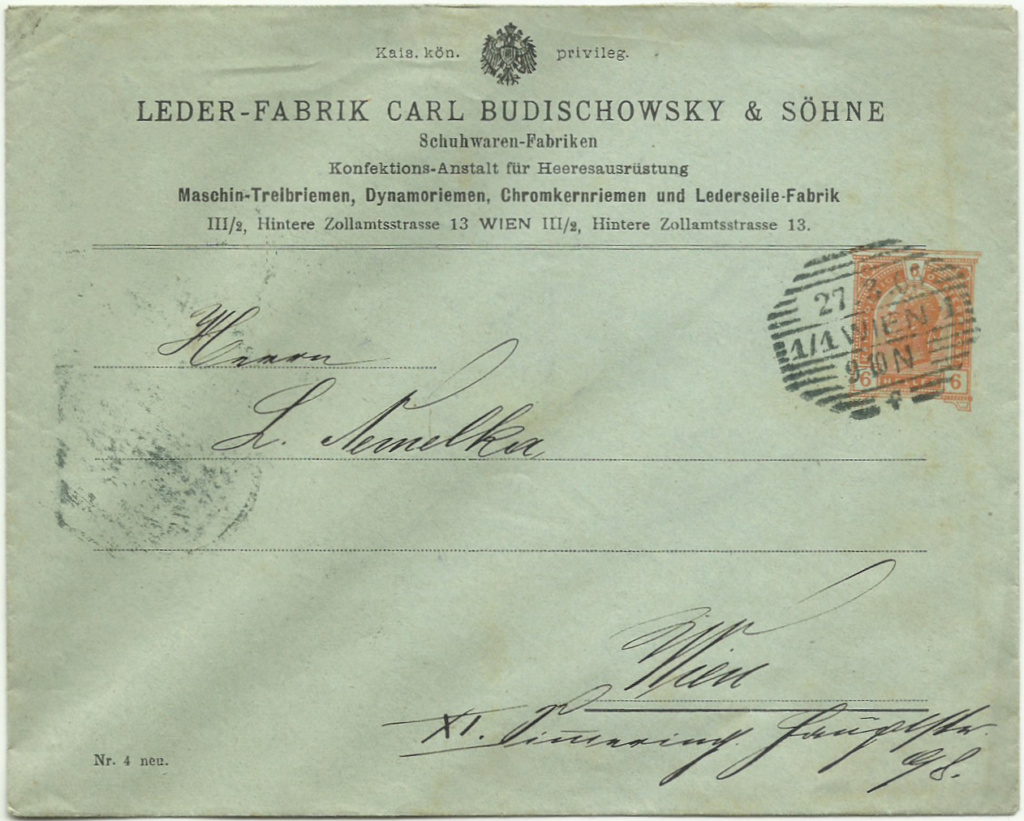 Kais. kön. privileg.
LEDER-FABRIK CARL BUDISCHOWSKY & SÖHNE
Schuhwaren-Fabriken
Konfektions-Anstalt für Heeresausrüstung
Maschin-Treibriemen, Dynamoriemen, Chromkernriemen und Lederseile-Fabrik
III/2, Hintere Zollamtsstrasse 13 WIEN III/2, Hintere Zollamtsstrasse 13.
27
1/1 WIEN 1
9·10 N
6 6
Herrn
L. Nemelka
Wien
XI. Simmering. Hauptstr.
98.
Nr. 4 neu.